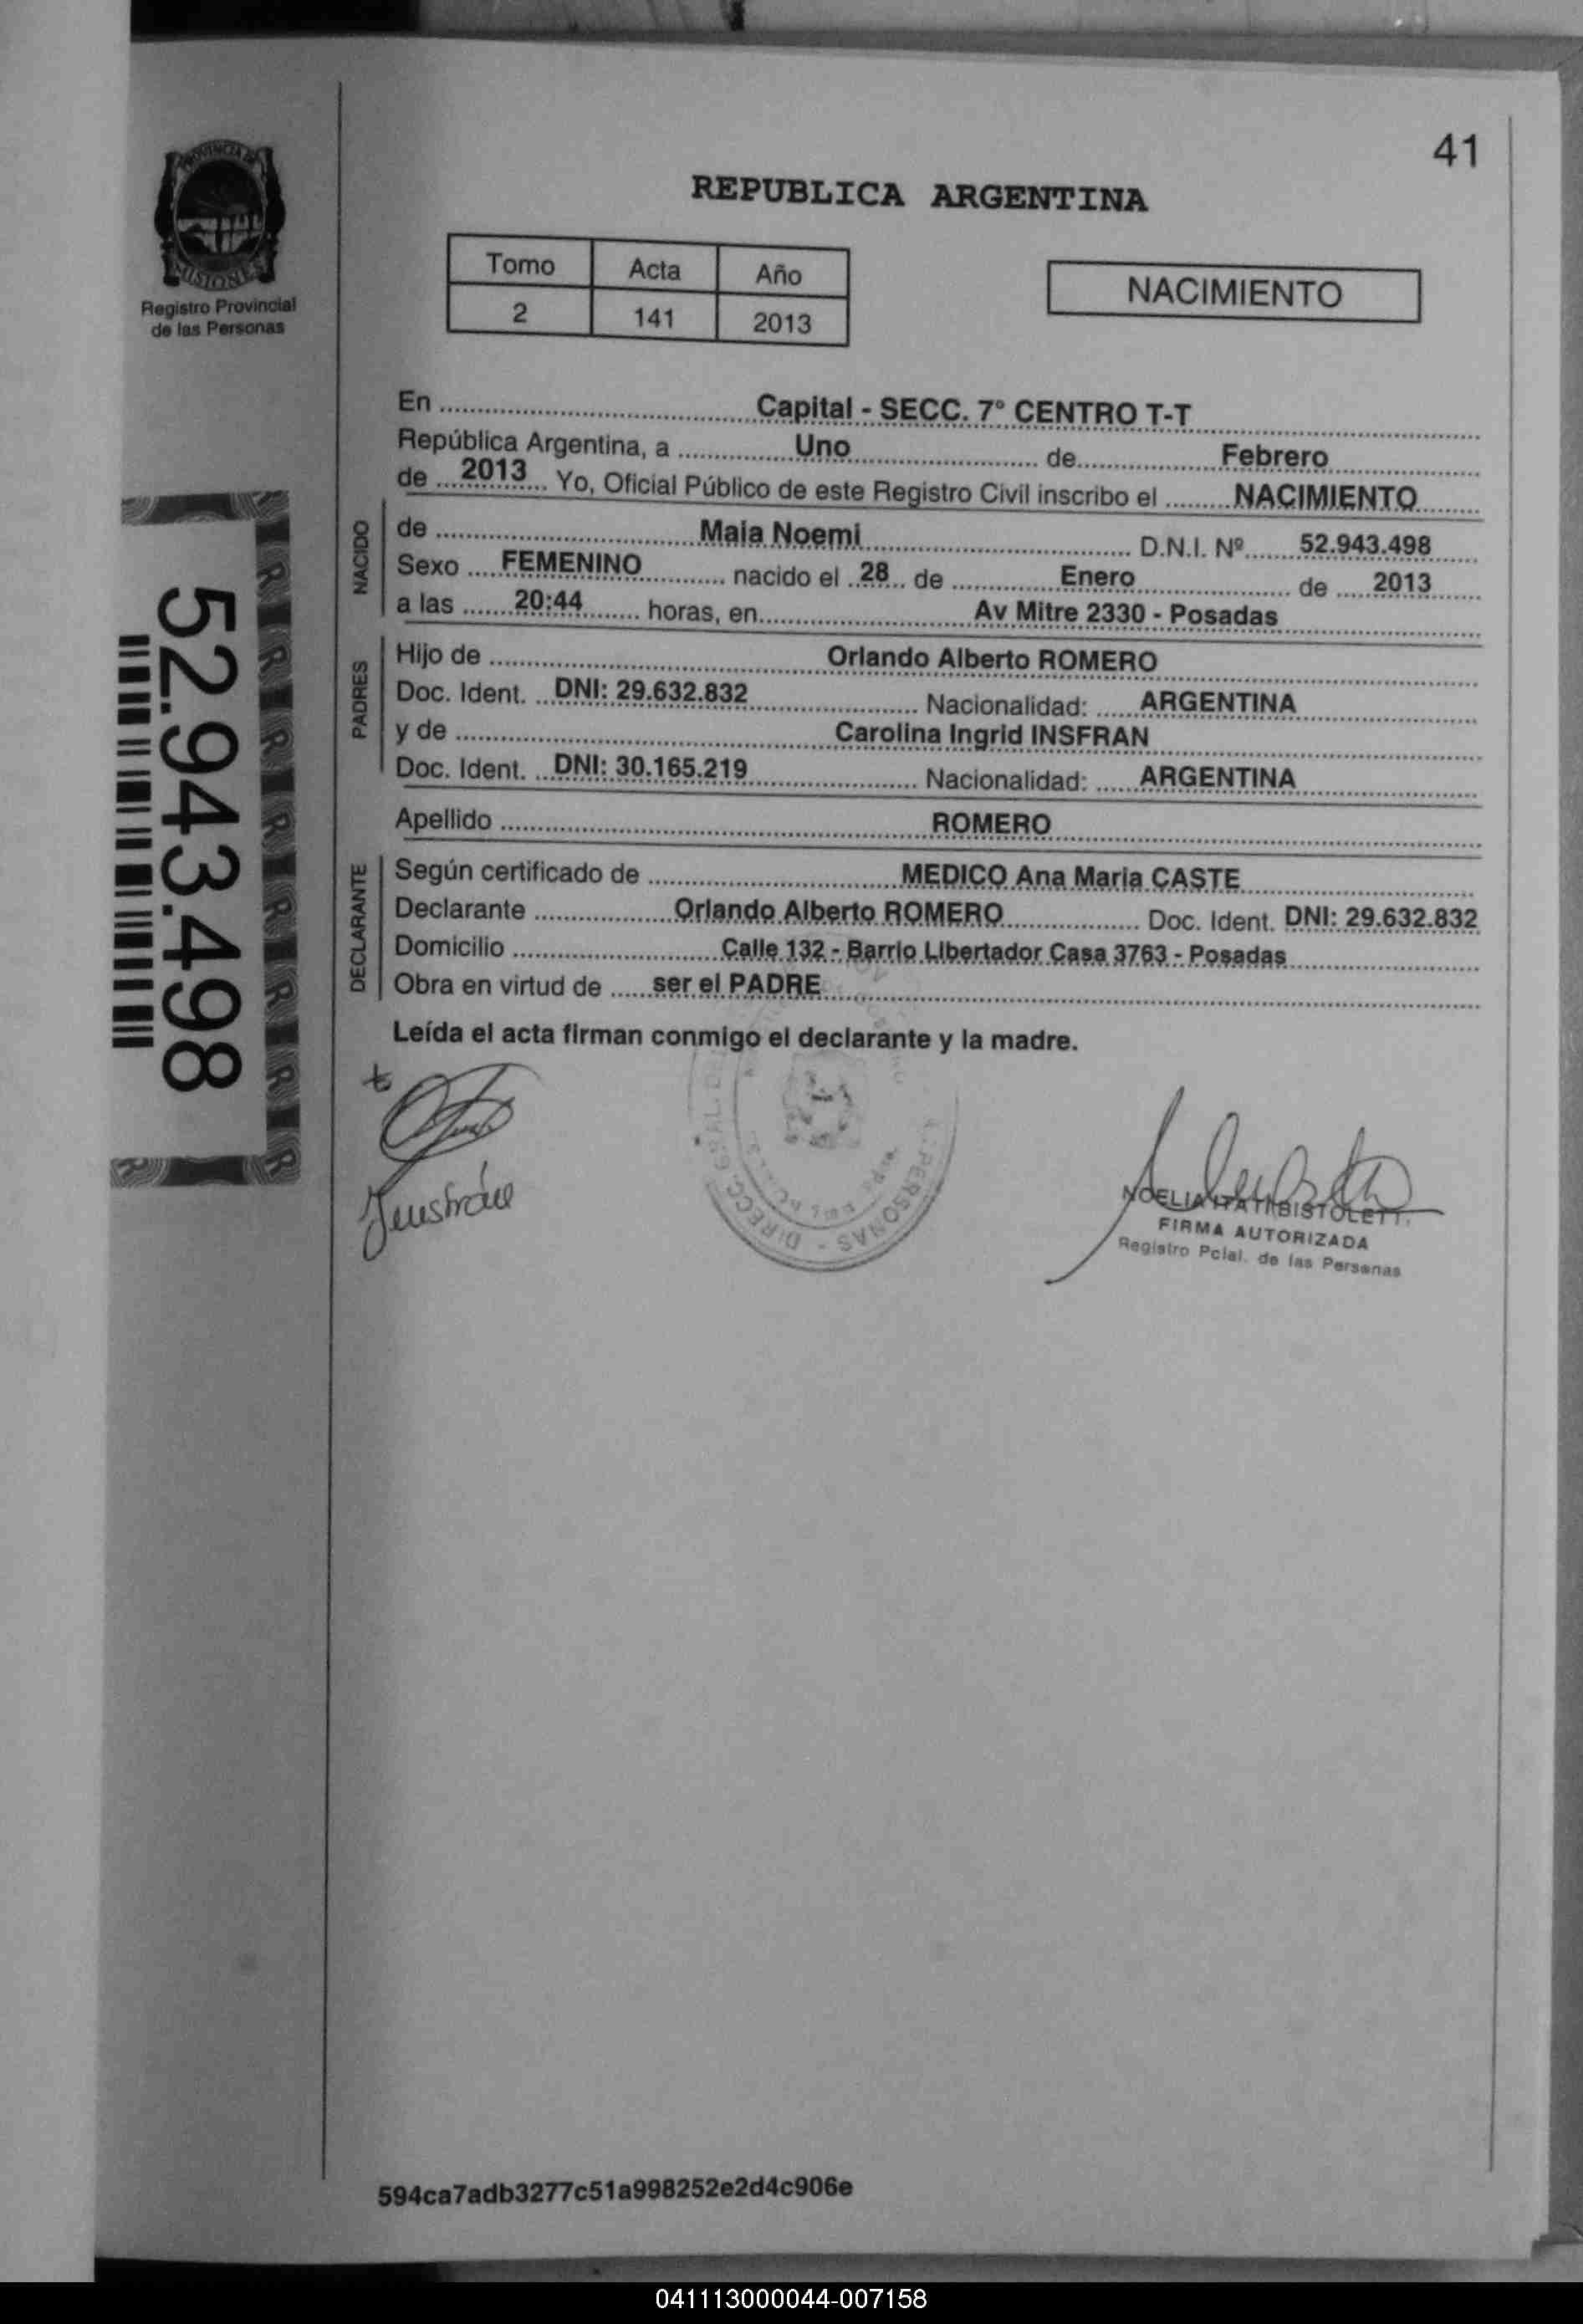 41
PROVINCIA DE
MISIONES
Registro Provincial
de las Personas
REPUBLICA ARGENTINA
Tomo Acta Año
2 141 2013
NACIMIENTO
En Capital - SECC. 7° CENTRO T-T
República Argentina, a Uno de Febrero
de 2013 Yo, Oficial Público de este Registro Civil inscribo el NACIMIENTO
NACIDO
de Maia Noemi D.N.I. Nº 52.943.498
Sexo FEMENINO nacido el 28 de Enero de 2013
a las 20:44 horas, en Av Mitre 2330 - Posadas
PADRES
Hijo de Orlando Alberto ROMERO
Doc. Ident. DNI: 29.632.832 Nacionalidad: ARGENTINA
y de Carolina Ingrid INSFRAN
Doc. Ident. DNI: 30.165.219 Nacionalidad: ARGENTINA
Apellido ROMERO
DECLARANTE
Según certificado de MEDICO Ana Maria CASTE
Declarante Orlando Alberto ROMERO Doc. Ident. DNI: 29.632.832
Domicilio Calle 132 - Barrio Libertador Casa 3763 - Posadas
Obra en virtud de ser el PADRE
Leída el acta firman conmigo el declarante y la madre.
52.943.498
DIRECC. GRAL. PERSONAS
NOELIA ITATI BISTOLETT.
FIRMA AUTORIZADA
Registro Pcial. de las Personas
594ca7adb3277c51a998252e2d4c906e
041113000044-007158